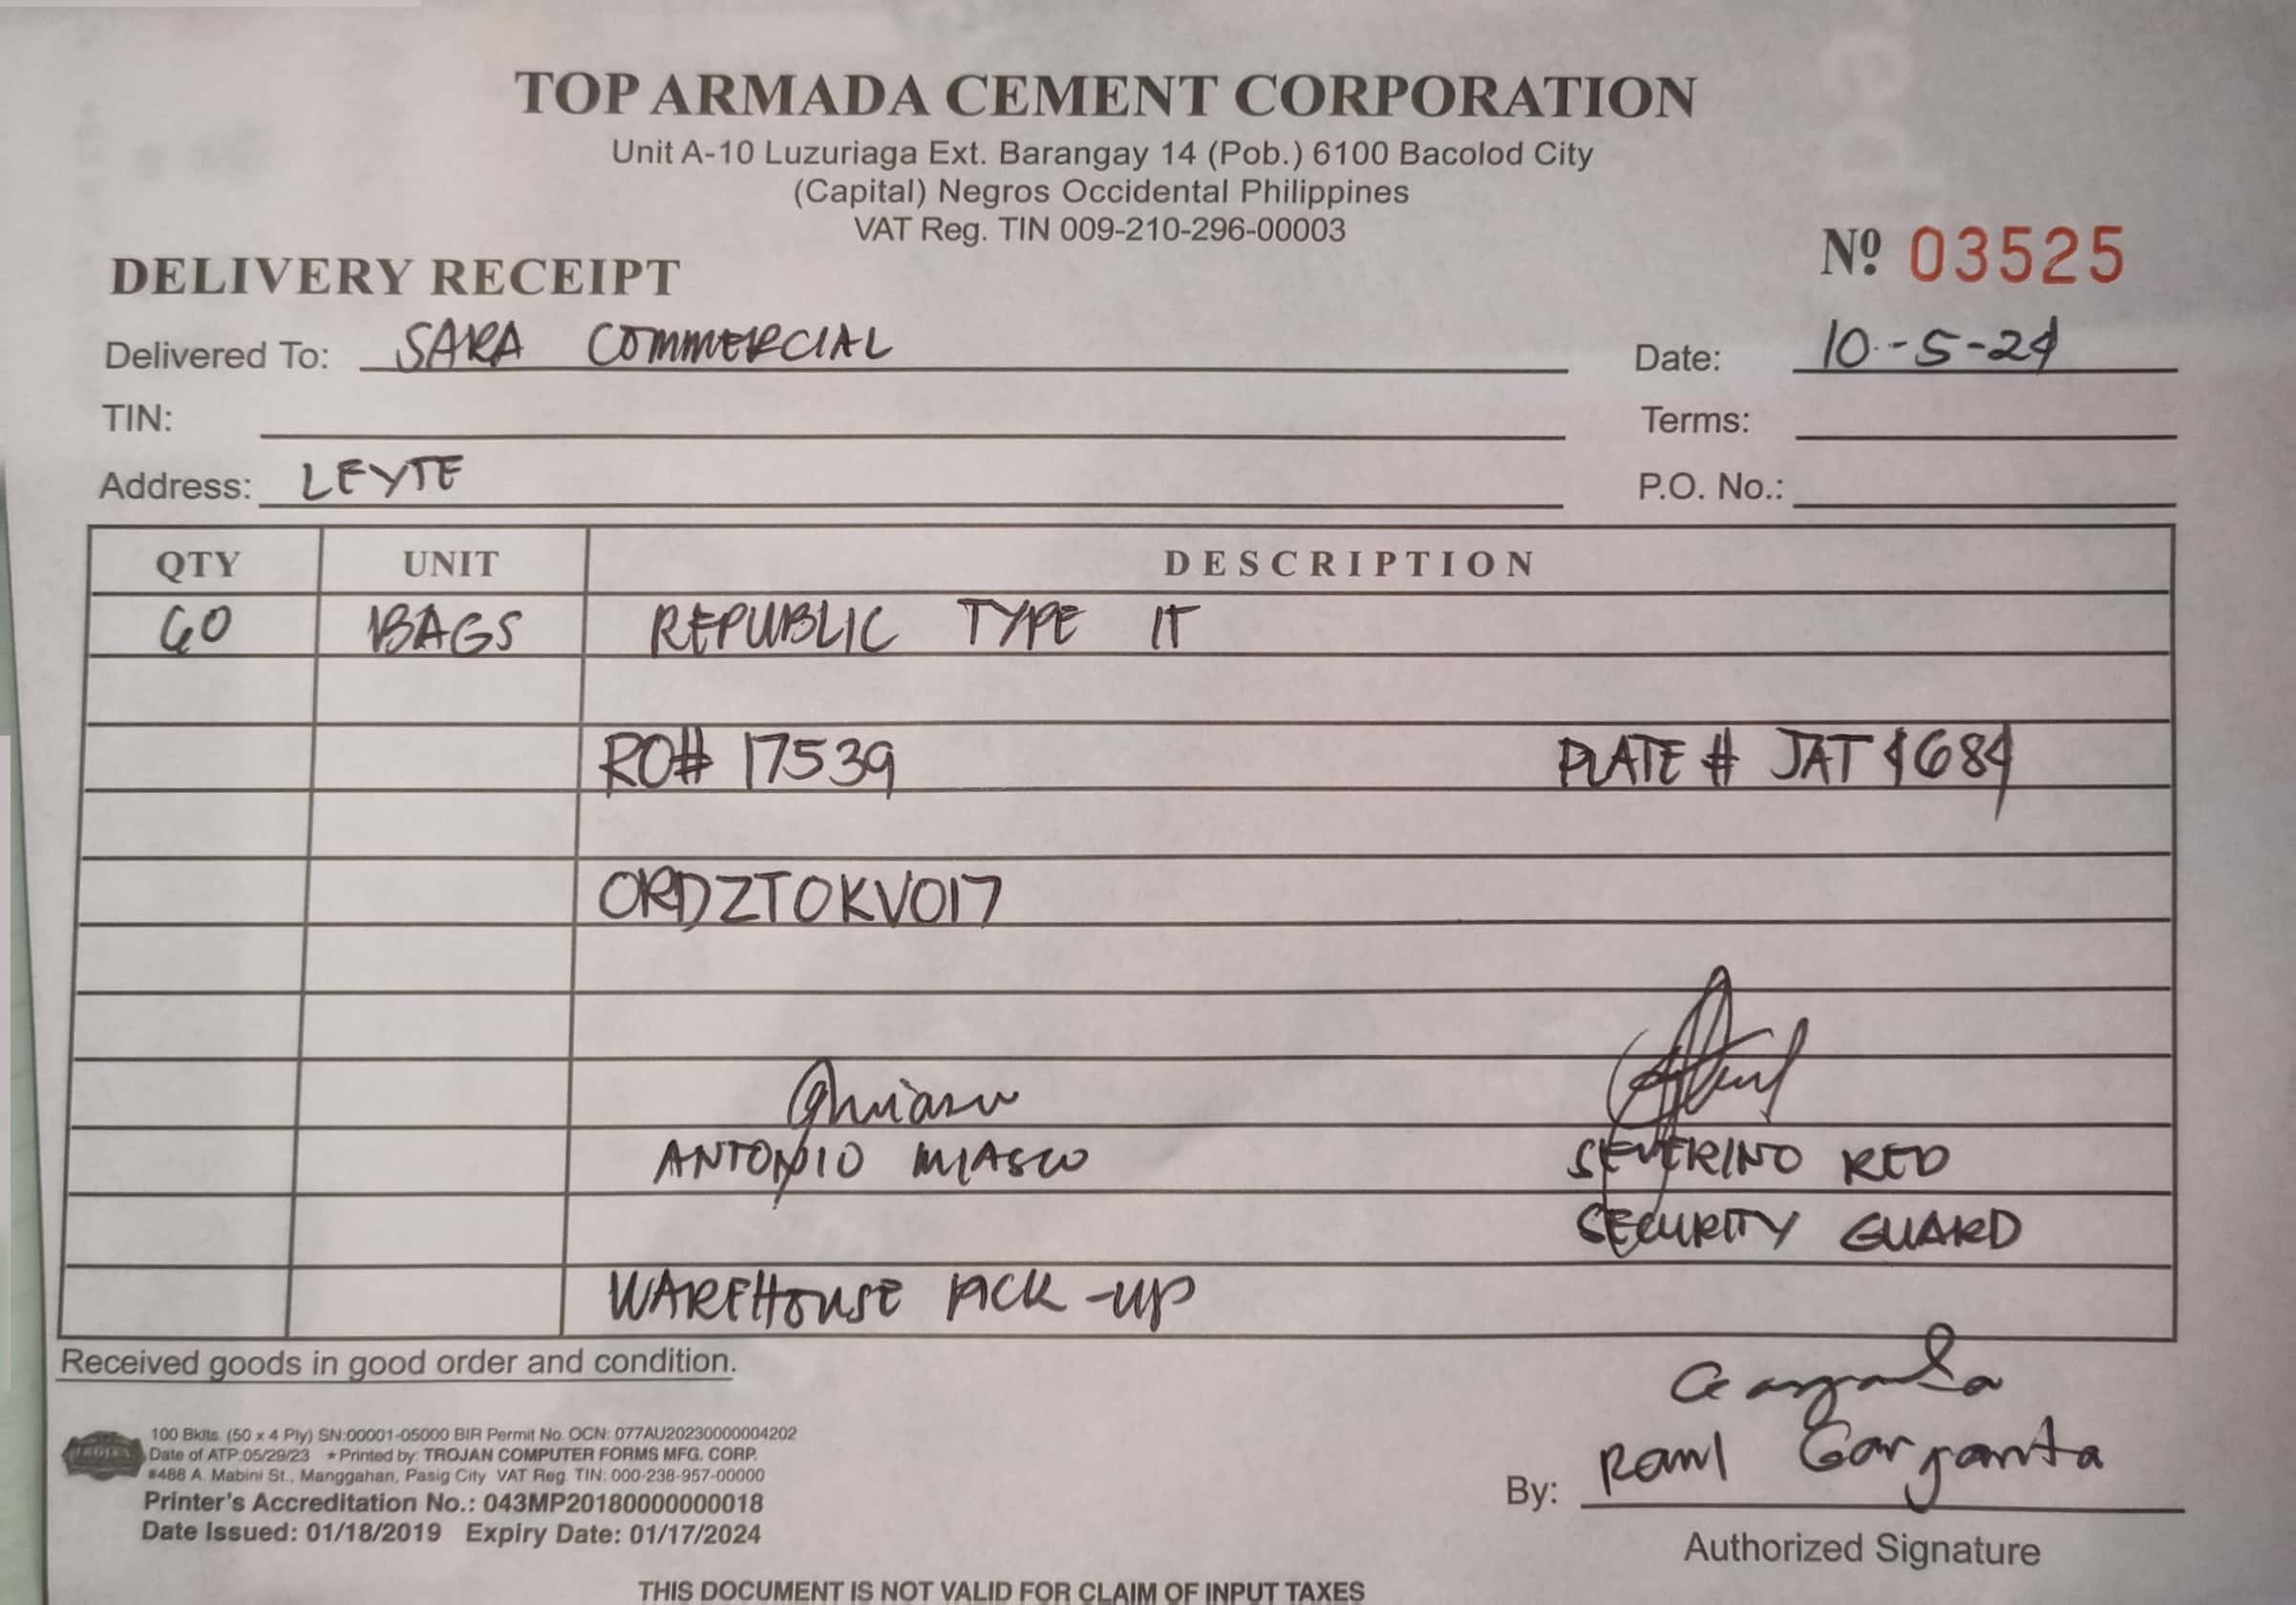 TOP ARMADA CEMENT CORPORATION
Unit A-10 Luzuriaga Ext. Barangay 14 (Pob.) 6100 Bacolod City
(Capital) Negros Occidental Philippines
VAT Reg. TIN 009-210-296-00003
Nº 03525
DELIVERY RECEIPT
Delivered To: SARA COMMERCIAL Date: 10-5-24
TIN: Terms:
Address: LEYTE P.O. No.:
QTY UNIT DESCRIPTION
BAGS REPUBLIC TYPE
RO# 17539 PLATE # JAT 4684
ORDZTOKVO17
ANTONIO MIASCO SEVERINO RED
SECURITY GUARD
WAREHOUSE PICK-UP
Received goods in good order and condition.
100 Bklts. (50 x 4 Ply) SN:00001-05000 BIR Permit No. OCN: 077AU20230000004202
Date of ATP:05/29/23 * Printed by: TROJAN COMPUTER FORMS MFG. CORP.
#488 A. Mabini St., Manggahan, Pasig City VAT Reg. TIN: 000-238-957-00000
Printer's Accreditation No.: 043MP20180000000018
Date Issued: 01/18/2019 Expiry Date: 01/17/2024
By: Raul Garganta
Authorized Signature
THIS DOCUMENT IS NOT VALID FOR CLAIM OF INPUT TAXES